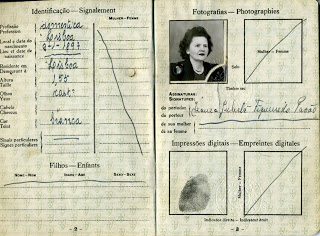 Identificação — Signalement
MULHER - FEMME
Profissão
Profession
doméstica
Local e data de
nascimento
Lieu et date de
naissance
Lisboa
1897
Residente em
Demeurant à
Lisboa
Altura
Taille
1,55
Olhos
Yeux
cast.
Cabelo
Cheveux
Côr
Teint
branca
Sinais particulares
Signes particuliers
Filhos — Enfants
NOME - NOM
IDADE - AGE
SEXO - SEXE
- 2 -
Fotografias — Photographies
Mulher - Femme
Selo
Timbre sec
ASSINATURAS:
SIGNATURES:
do portador
du porteur
Figueiredo Pavão
de sua mulher
de sa femme
Impressões digitais — Empreintes digitales
Mulher - Femme
Indicador direito — Index droit
- 3 -